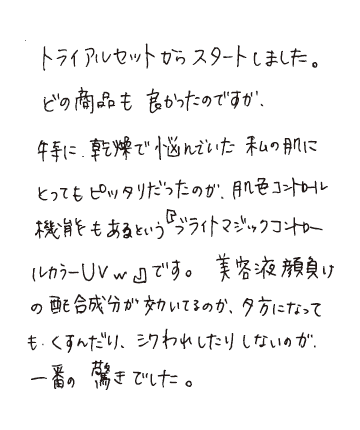 トライアルセットからスタートしました。
どの商品も良かったのですが、
特に、乾燥で悩んでいた私の肌に
とってもピッタリだったのが、肌色コントロール
機能もあるという『ブライトマジックコントロー
ルカラーUVw』です。美容液顔負け
の配合成分が効いてるのか、夕方になって
も、くすんだり、シワわれしたりしないのが、
一番の驚きでした。